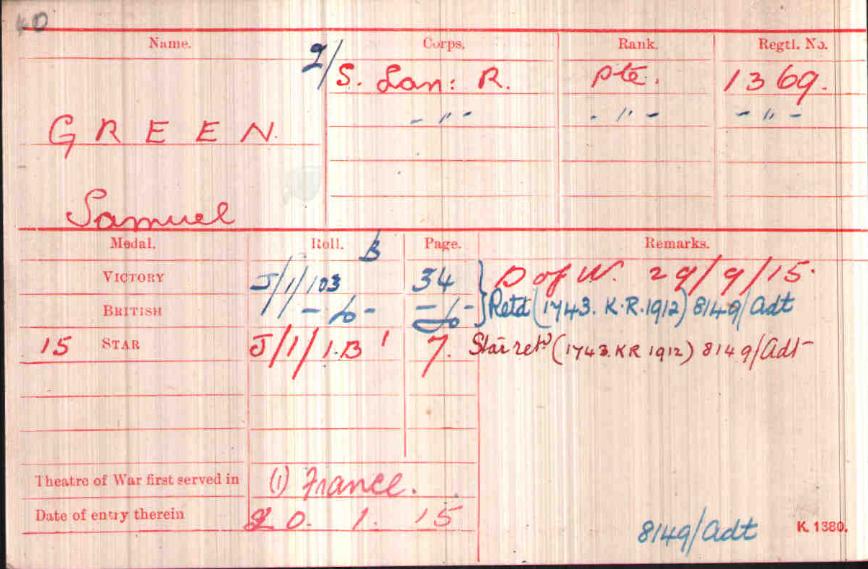 40
Name. Corps. Rank. Regtl. No.
2/ S. Lan: R. Pte. 1369.
- " - - " - - " -
GREEN
Samuel
Medal. Roll. B Page. Remarks.
VICTORY J/1/103 34 D of W. 29/9/15.
BRITISH - do - - do - Retd (1743. K.R. 1912) 8149/Adt
15 STAR J/1/1.B 7. Star retd (1743. KR 1912) 8149/Adt
Theatre of War first served in (1) France.
Date of entry therein 20. 1. 15
8149/Adt K. 1380.